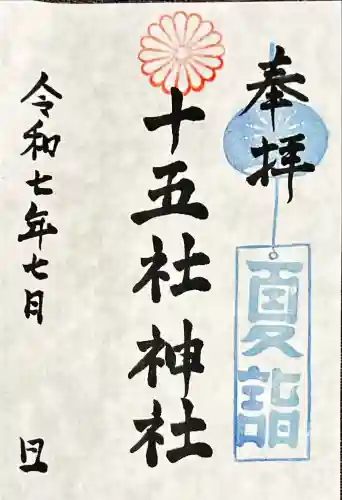 奉拝
夏詣
十五社神社
令和七年七月 日